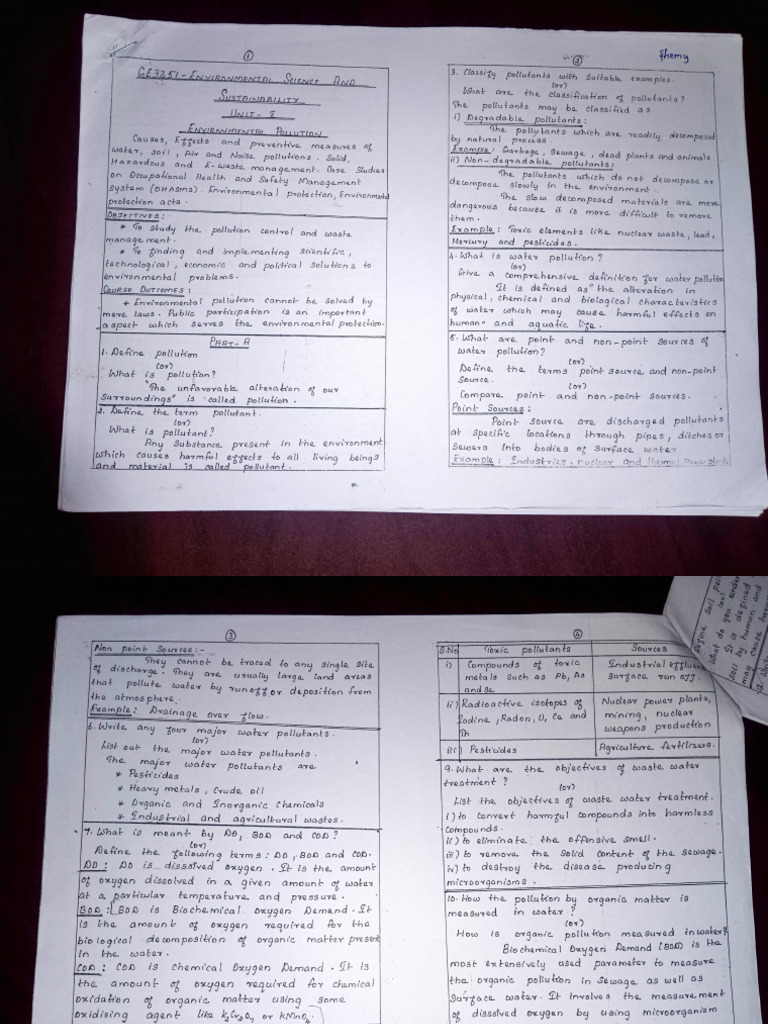 1
GE3251-ENVIRONMENTAL SCIENCE AND
SUSTAINABILITY
UNIT-I
ENVIRONMENTAL POLLUTION
Causes, Effects and preventive measures of
water, soil, Air and Noise pollutions. Solid,
Hazardous and E-waste management. Case Studies
on Occupational Health and Safety Management
system (OHASMS). Environmental protection, Environmental
protection acts.
OBJECTIVES:
* To study the pollution control and waste
management.
* To finding and implementing scientific,
technological, economic and political solutions to
environmental problems.
COURSE OUTCOMES:
* Environmental pollution cannot be solved by
mere laws. Public participation is an important
aspect which serves the environmental protection.
PART-A
1. Define pollution
(or)
What is pollution?
"The unfavorable alteration of our
surroundings" is called pollution.
2. Define the term pollutant.
(or)
What is pollutant?
Any Substance present in the environment
which causes harmful effects to all living beings
and material is called pollutant.
2
Shemy
3. Classify pollutants with suitable examples.
(or)
What are the classification of pollutants?
The pollutants may be classified as
i) Degradable pollutants:
The pollutants which are readily decomposed
by natural process.
Example: Garbage, Sewage, dead plants and animals
ii) Non-degradable pollutants:
The pollutants which do not decompose or
decompose slowly in the environment.
The slow decomposed materials are more
dangerous because it is more difficult to remove
them.
Example: Toxic elements like nuclear waste, lead,
Mercury and pesticides.
4. What is water pollution?
(or)
Give a comprehensive definition for water pollution
It is defined as "the alteration in
physical, chemical and biological characteristics
of water which may cause harmful effects on
human and aquatic life.
5. What are point and non-point sources of
water pollution?
(or)
Define the terms point source and non-point
source.
(or)
Compare point and non-point sources.
Point Sources:
Point source are discharged pollutants
at specific locations through pipes, ditches or
sewers into bodies of surface water
Example: Industries, nuclear and thermal power plants
3
Non point Sources:-
They cannot be traced to any single site
of discharge. They are usually large land areas
that pollute water by runoff or deposition from
the atmosphere.
Example: Drainage over flow.
6. Write any four major water pollutants.
(or)
List out the major water pollutants.
The major water pollutants are
* Pesticides
* Heavy metals, Crude oil
* Organic and Inorganic Chemicals
* Industrial and agricultural wastes.
7. What is meant by DO, BOD and COD?
(or)
Define the following terms: DO, BOD and COD.
DO: DO is dissolved oxygen. It is the amount
of oxygen dissolved in a given amount of water
at a particular temperature and pressure.
BOD: BOD is Biochemical Oxygen Demand. It
is the amount of oxygen required for the
biological decomposition of organic matter present
in the water.
COD: COD is chemical Oxygen Demand. It is
the amount of oxygen required for chemical
oxidation of organic matter using some
oxidising agent like K2Cr2O7 or KMnO4.
4
S.No Toxic pollutants Sources
i) Compounds of toxic Industrial effluent
metals such as Pb, As Surface run off.
and Se
ii) Radioactive isotopes of Nuclear power plants,
Iodine, Radon, U, Ce and mining, nuclear
Th weapons production
iii) Pesticides Agriculture fertilizers.
9. What are the objectives of waste water
treatment?
(or)
List the objectives of waste water treatment.
i) to convert harmful compounds into harmless
compounds.
ii) to eliminate the offensive smell.
iii) to remove the solid content of the sewage.
iv) to destroy the disease producing
microorganisms.
10. How the pollution by organic matter is
measured in water?
(or)
How is organic pollution measured in water?
Biochemical Oxygen Demand (BOD) is the
most extensively used parameter to measure
the organic pollution in sewage as well as
surface water. It involves the measurement
of dissolved oxygen by using microorganism
Define soil
(or)
What do you
It is defined
soil by human and
may cause